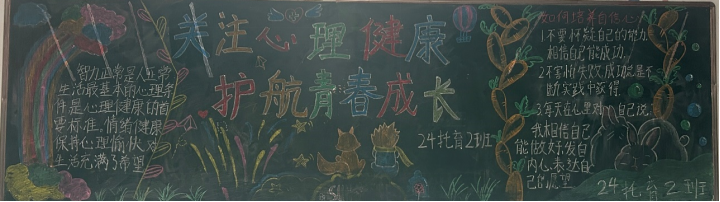 关注心理健康
护航青春成长
24托育2班
智力正常是人正常
生活最基本的心理条
件是心理健康的首
要标准,情绪健康
保持心理愉快,对
生活充满了希望
如何培养自信心
1.不要怀疑自己的能力
相信自己能成功.
2.不要怕失败成功就是不
断实践中获得.
3.每天在心里对自己说:
我相信自己
能做好发自
内心表达自
己的愿望
24托育2班